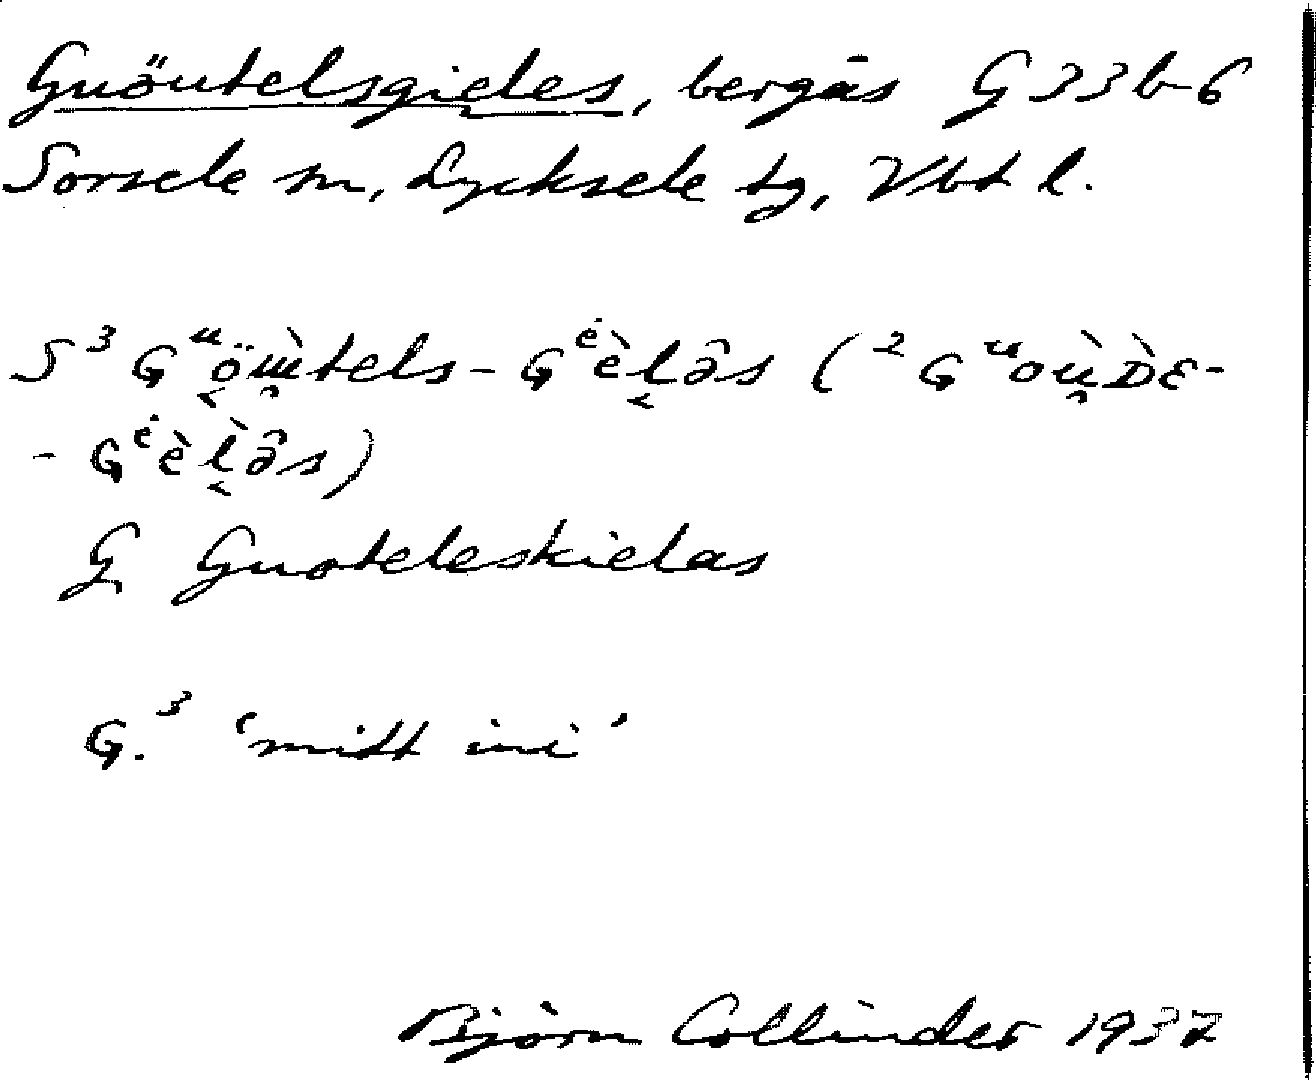 Guöutelsgieles, bergås G 33 b-6
Sorsele sn, Lycksele tg, Vbt l.
S ³Gᵘö̬ẁ̯tels-Gᵉ̇èl̬ə̂s (²Gᵘoù̯D̀ɛ-
-Gᵉ̇èl̬̀ə̂s)
G Guoteleskielas
G.³ 'mitt ini'
Björn Collinder 1937